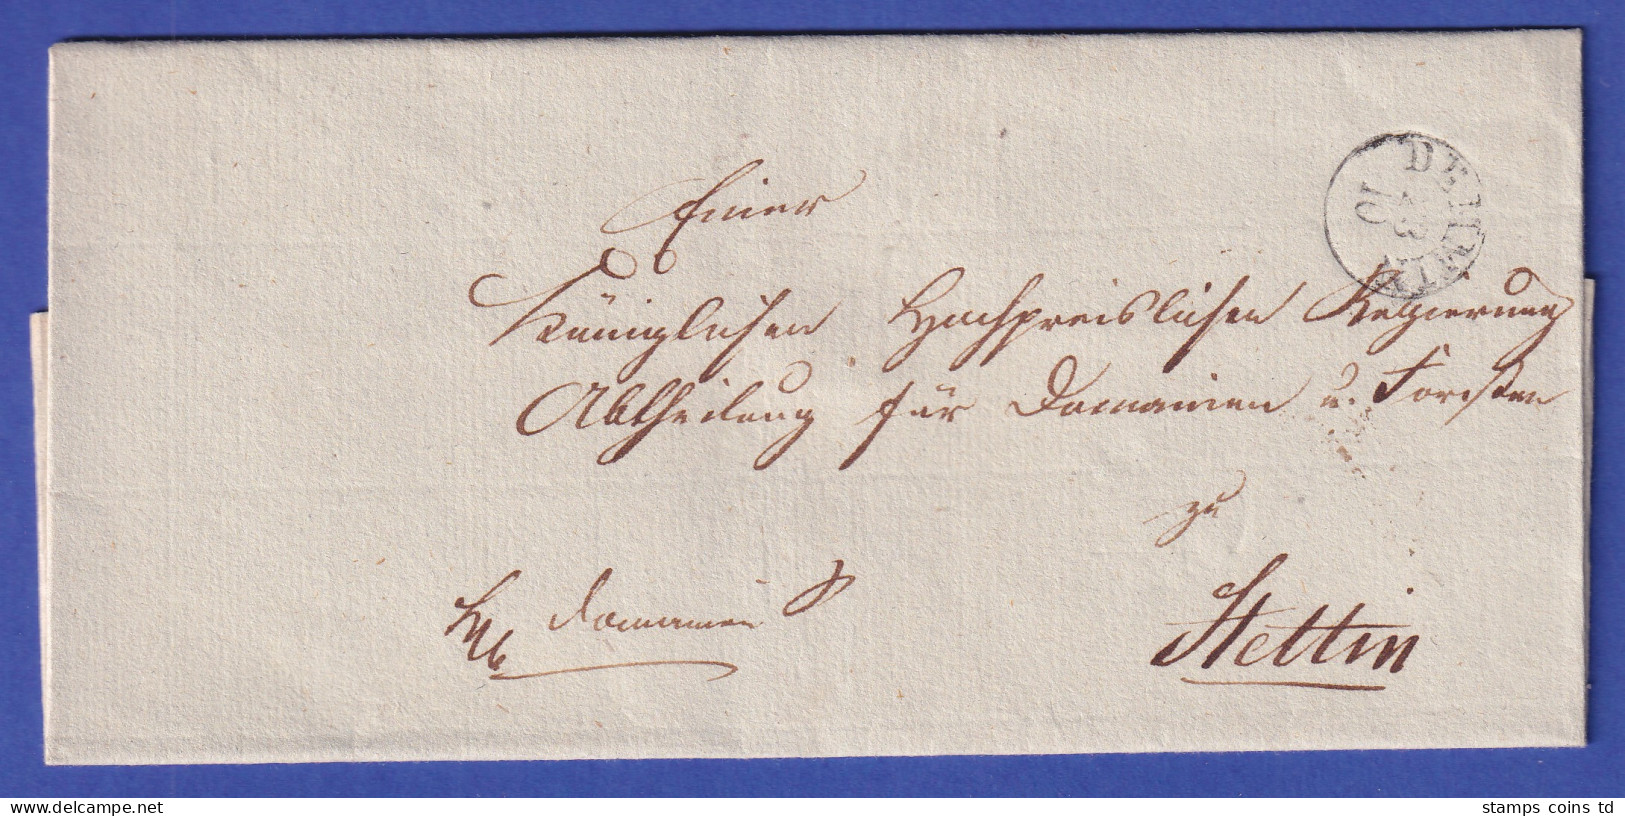 DEMMIN
23
10
Einer
Königlichen Hochpreislichen Regierung
Abtheilung für Domainen u. Forsten
zu
Stettin
Domainen
www.delcampe.net
stamps coins td